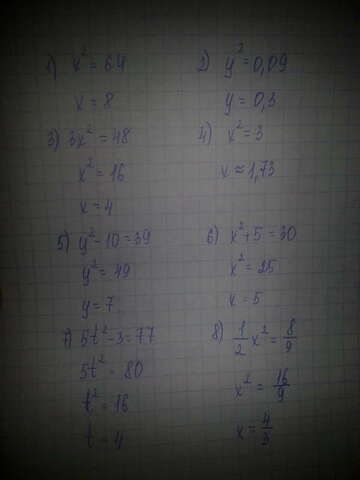 1) x² = 64
x = 8
2) y² = 0,09
y = 0,3
3) 3x² = 48
x² = 16
x = 4
4) x² = 3
x ≈ 1,73
5) y² - 10 = 39
y² = 49
y = 7
6) x² + 5 = 30
x² = 25
x = 5
7) 5t² - 3 = 77
5t² = 80
t² = 16
t = 4
8) 1/2 x² = 8/9
x² = 16/9
x = 4/3